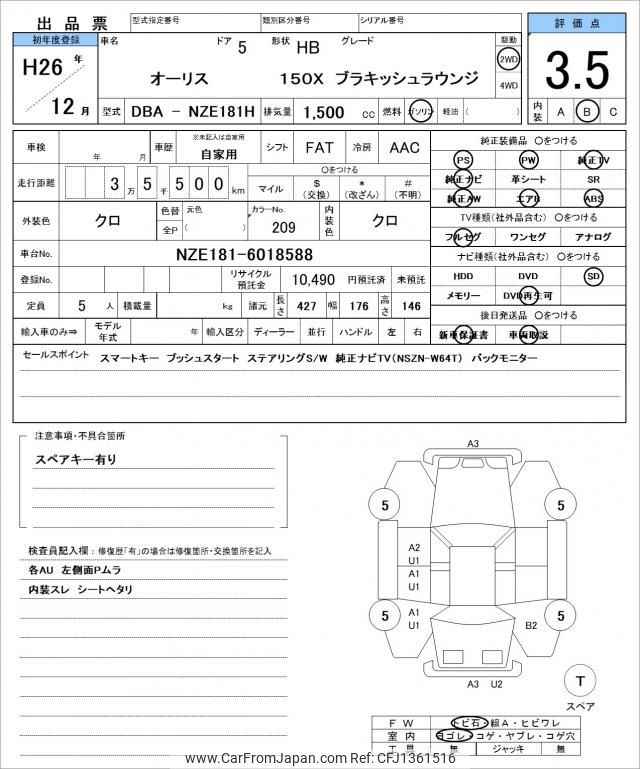 出品票 型式指定番号 類別区分番号 シリアル番号
評価点
初年度登録 車名 ドア 5 形状 HB グレード 駆動
H26 年 オーリス 150X ブラキッシュラウンジ 2WD 3.5
4WD
12 月 型式 DBA - NZE181H 排気量 1,500 cc 燃料 ガソリン 軽油 ( ) 内装 A B C
車検 年 月 車歴 ※未記入は自家用 自家用 シフト FAT 冷房 AAC 純正装備品 〇をつける
PS PW 純正TV
走行距離 3 万 5 千 5 0 0 km マイル 〇をつける $ (交換) * (改ざん) # (不明) 純正ナビ 革シート SR
純正AW エアB ABS
外装色 クロ 色替 元色 全P ( ) カラーNo. 209 内装色 クロ TV種類(社外品含む) 〇をつける
フルセグ ワンセグ アナログ
車台No. NZE181-6018588 ナビ種類(社外品含む) 〇をつける
登録No. リサイクル預託金 10,490 円預託済 未預託 HDD DVD SD
定員 5 人 積載量 kg 諸元 長さ 427 幅 176 高さ 146 メモリー DVD再生可
後日発送品 〇をつける
輸入車のみ⇒ モデル年式 年 輸入区分 ディーラー 並行 ハンドル 左 右 新車保証書 車両取説
セールスポイント スマートキー プッシュスタート ステアリングS/W 純正ナビTV(NSZN-W64T) バックモニター
注意事項・不具合箇所
スペアキー有り
検査員記入欄：修復歴「有」の場合は修復箇所・交換箇所を記入
各AU 左側面Pムラ
内装スレ シートヘタリ
A3
5 5
A2
U1
A1
U1
A1
U1 B2
5 5
A3 U2
T
スペア
FW トビ石・線A・ヒビワレ
室内 ヨゴレ・コゲ・ヤブレ・コゲ穴
工具 無 ジャッキ 無
www.CarFromJapan.com Ref: CFJ1361516